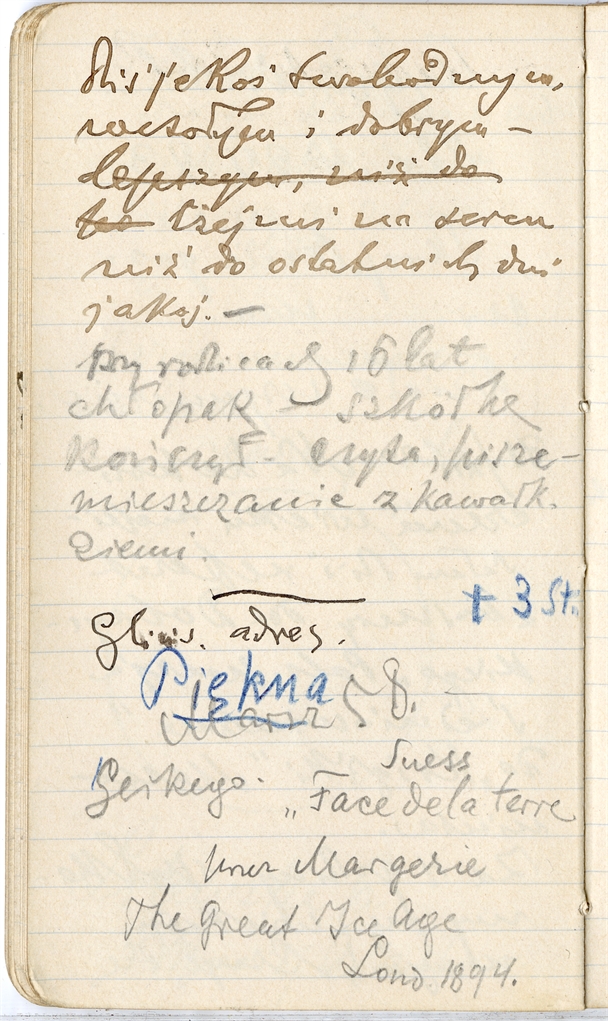 dziś jakoś swobodnym,
wesołym i dobrym –
lepszym, niż do
 lżej mi na sercu
niż do ostatnich dni
jakoś. –
przy rodzicach, 16 lat
chłopak – szkółkę
kończył – czyta, pisze –
mieszczanie z kawałk.
ziemi.
+ 3 St.
adres.
Piękna
Marsz 58. –
Suess
Geikego. „Face de la terre
przez Margerie
The Great Ice Age
Lond. 1894.